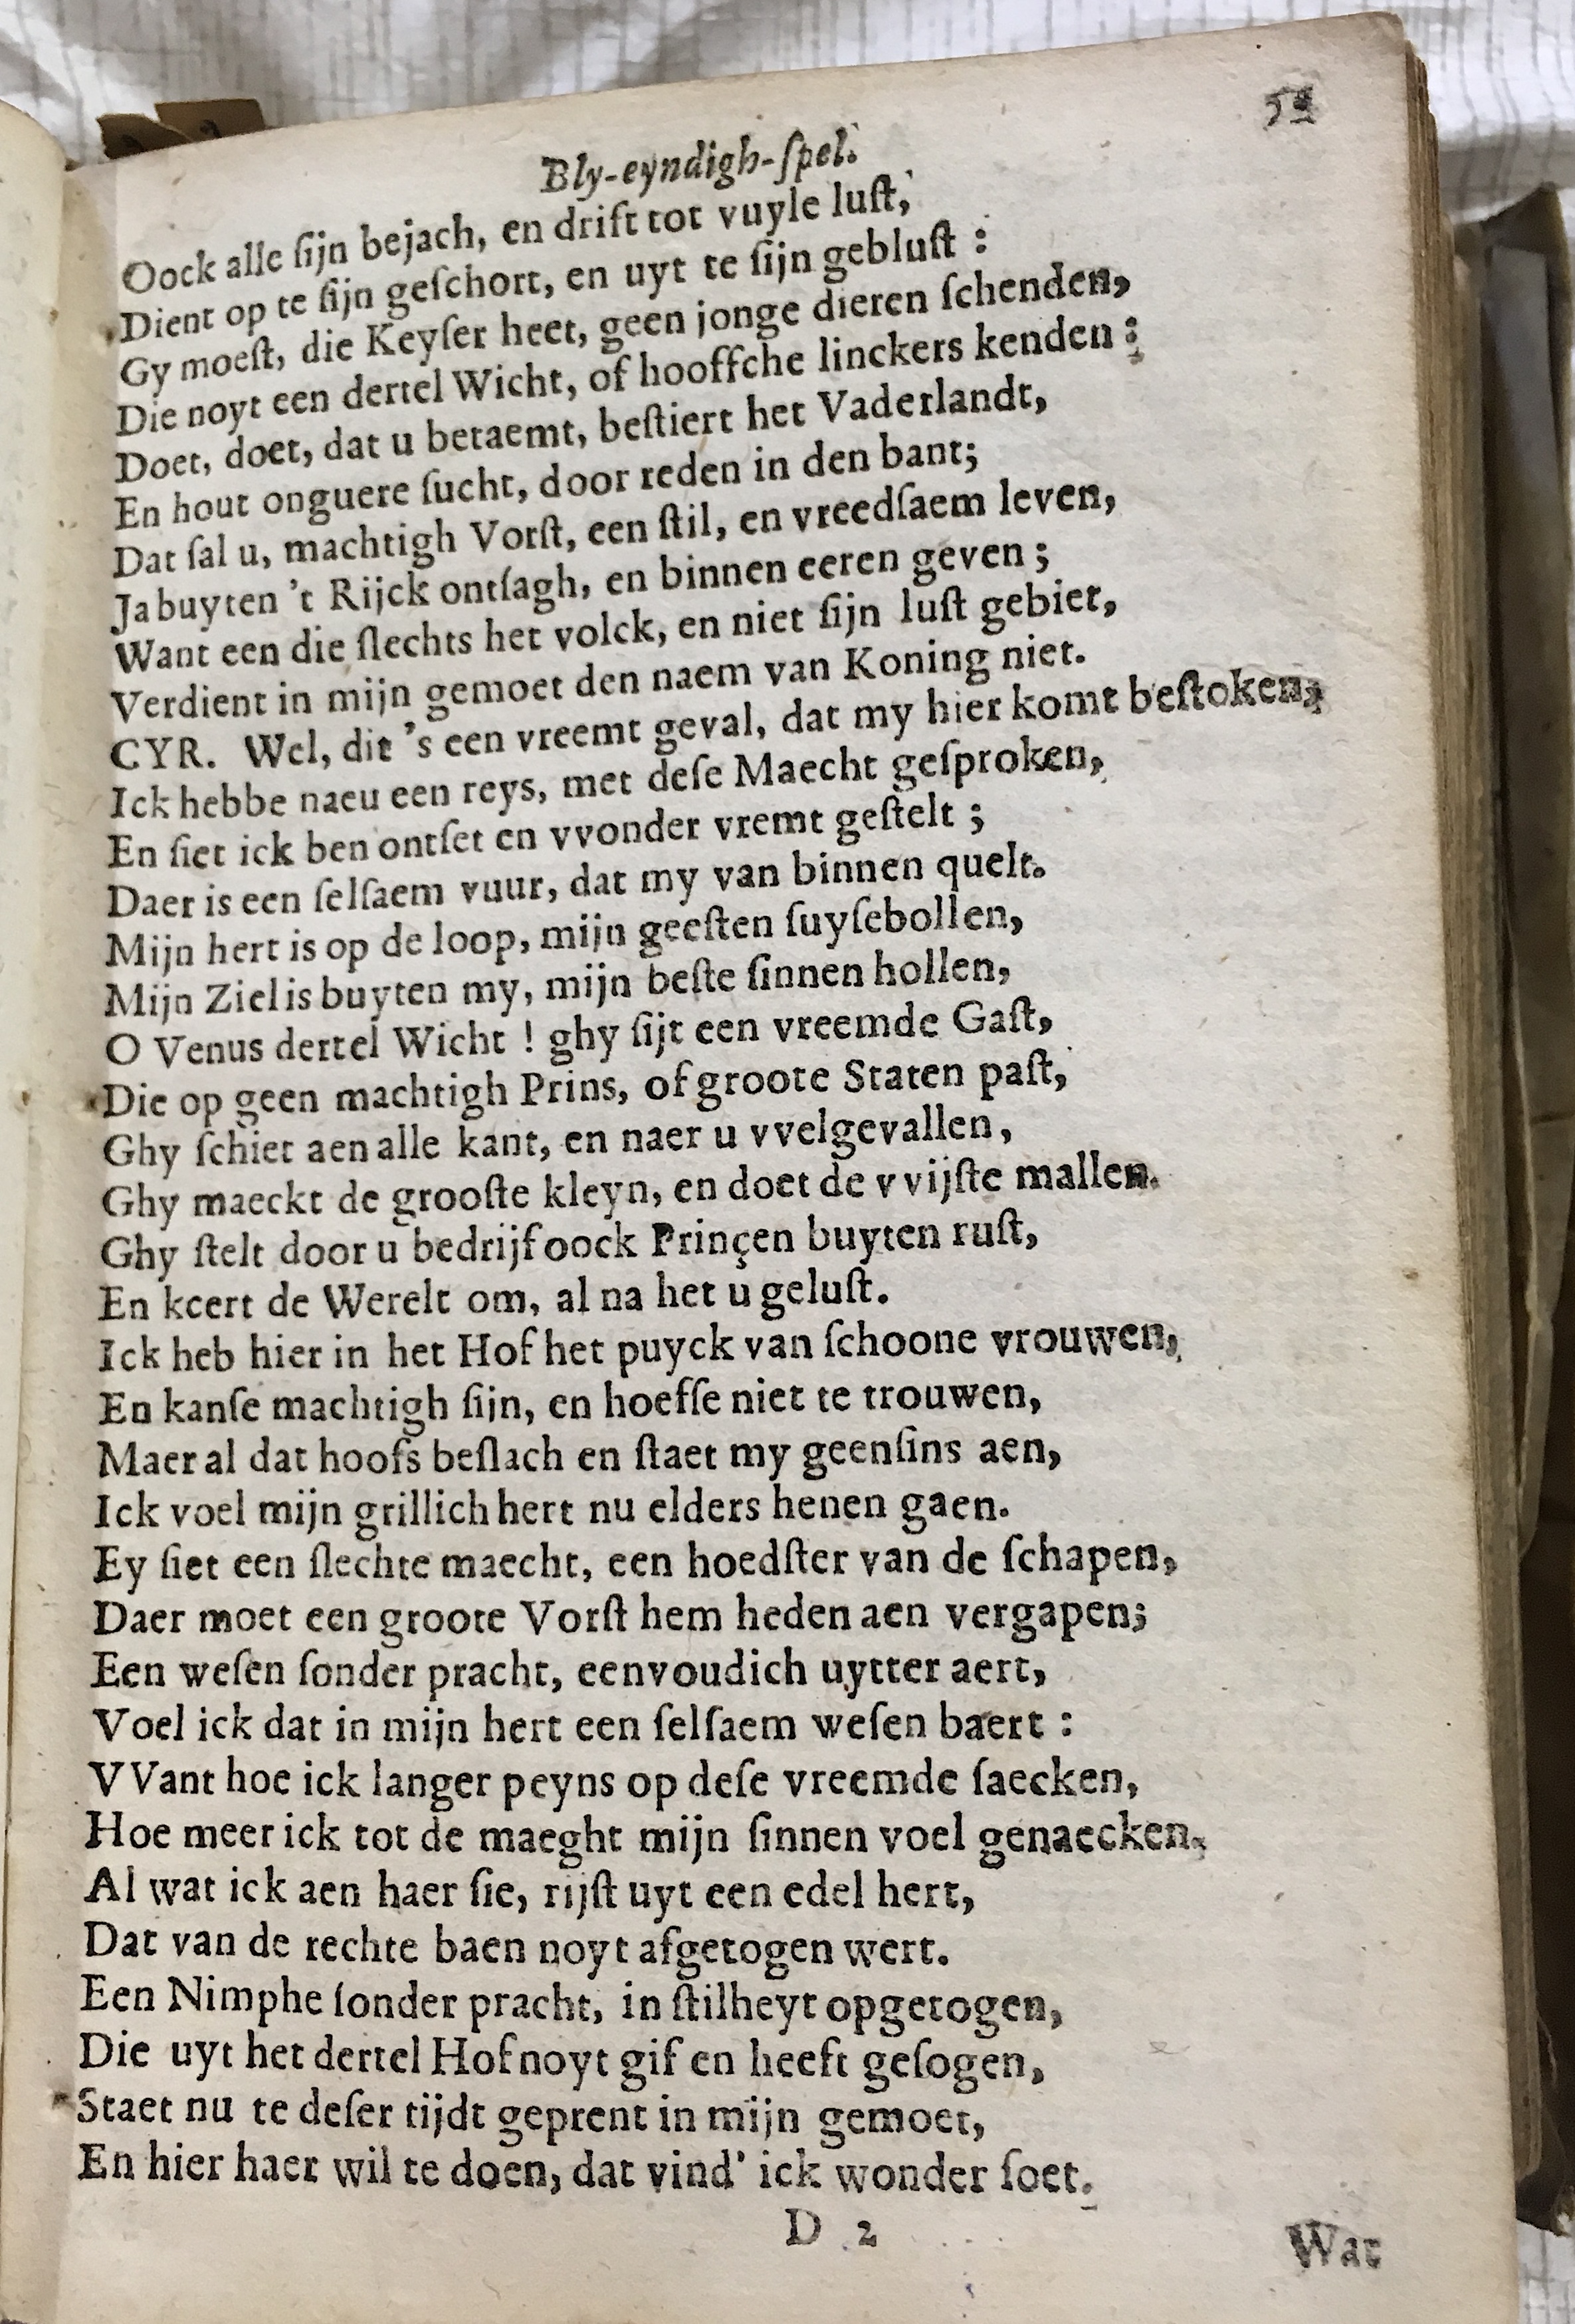 Bly-eyndigh-ſpel.
Oock alle ſijn bejach, en drift tot vuyle luſt,
Dient op te ſijn geſchort, en uyt te ſijn gebluſt :
Gy moeſt, die Keyſer heet, geen jonge dieren ſchenden,
Die noyt een dertel Wicht, of hooffche linckers kenden ;
Doet, doet, dat u betaemt, beſtiert het Vaderlandt,
En hout onguere ſucht, door reden in den bant;
Dat ſal u, machtigh Vorſt, een ſtil, en vreedſaem leven,
Ja buyten 't Rijck ontſagh, en binnen eeren geven ;
Want een die ſlechts het volck, en niet ſijn luſt gebiet,
Verdient in mijn gemoet den naem van Koning niet.
CYR. Wel, dit 's een vreemt geval, dat my hier komt beſtoken;
Ick hebbe naeu een reys, met deſe Maecht geſproken,
En ſiet ick ben ontſet en vvonder vremt geſtelt ;
Daer is een ſelſaem vuur, dat my van binnen quelt.
Mijn hert is op de loop, mijn geeſten ſuyſebollen,
Mijn Ziel is buyten my, mijn beſte ſinnen hollen,
O Venus dertel Wicht ! ghy ſijt een vreemde Gaſt,
Die op geen machtigh Prins, of groote Staten paſt,
Ghy ſchiet aen alle kant, en naer u vvelgevallen,
Ghy maeckt de grooſte kleyn, en doet de vvijſte mallen.
Ghy ſtelt door u bedrijf oock Prinçen buyten ruſt,
En keert de Werelt om, al na het u geluſt.
Ick heb hier in het Hof het puyck van ſchoone vrouwen,
En kanſe machtigh ſijn, en hoefſe niet te trouwen,
Maer al dat hoofs beſlach en ſtaet my geenſins aen,
Ick voel mijn grillich hert nu elders henen gaen.
Ey ſiet een ſlechte maecht, een hoedſter van de ſchapen,
Daer moet een groote Vorſt hem heden aen vergapen;
Een weſen ſonder pracht, eenvoudich uytter aert,
Voel ick dat in mijn hert een ſelſaem weſen baert :
VVant hoe ick langer peyns op deſe vreemde ſaecken,
Hoe meer ick tot de maeght mijn ſinnen voel genaecken.
Al wat ick aen haer ſie, rijſt uyt een edel hert,
Dat van de rechte baen noyt afgetogen wert.
Een Nimphe ſonder pracht, in ſtilheyt opgetogen,
Die uyt het dertel Hof noyt gif en heeft geſogen,
Staet nu te deſer tijdt geprent in mijn gemoet,
En hier haer wil te doen, dat vind' ick wonder ſoet.
D 2
Wat